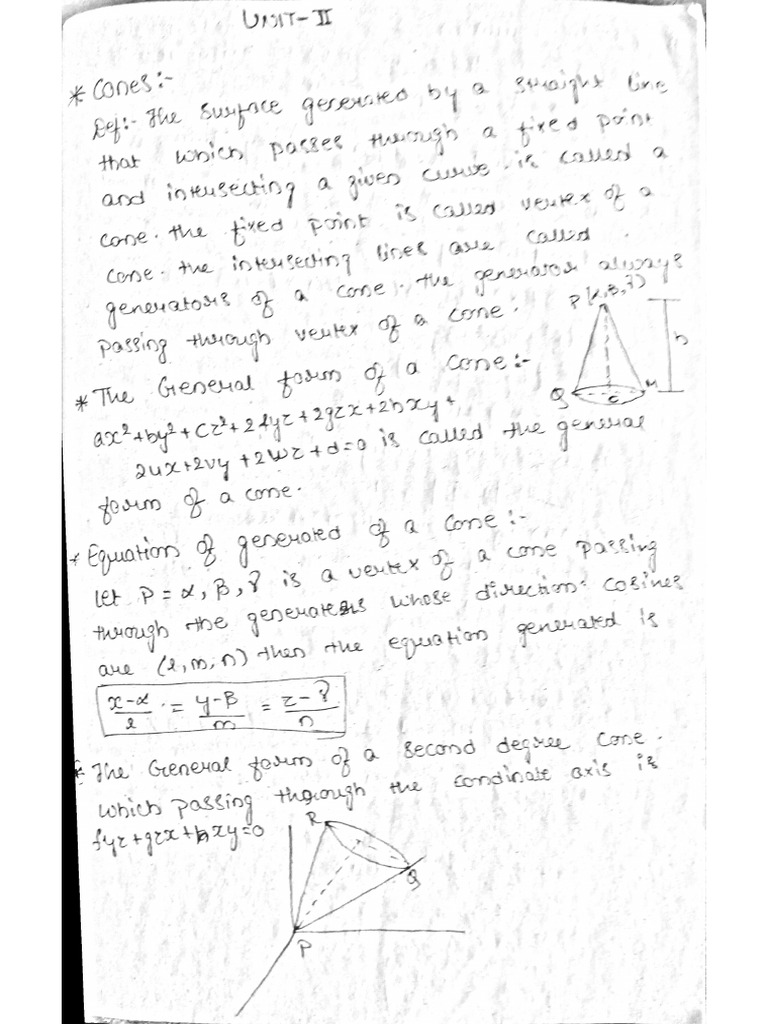 UNIT-II
* Cones:-
Def:- The surface generated by a straight line
that which passes through a fixed point
and intersecting a given curve is called a
cone. the fixed point is called vertex of a
cone. the intersecting lines are called
generators of a cone. the generator always
passing through vertex of a cone.
P(α,β,γ)
h
Q
C
M
* The General form of a cone:-
ax²+by²+cz²+2fyz+2gzx+2hxy+
2ux+2vy+2wz+d=0 is called the general
form of a cone.
* Equation of generated of a cone:-
let P=α,β,γ is a vertex of a cone passing
through the generators whose direction cosines
are (l,m,n) then the equation generated is
x-α/l = y-β/m = z-γ/n
* The General form of a second degree cone.
which passing through the cordinate axis is
fyz+gzx+hxy=0
R
Q
P